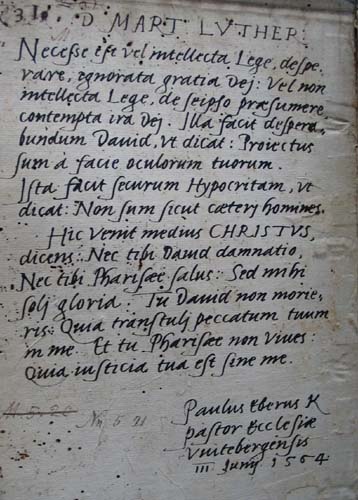 31.
D MART LVTHER
Necesse est vel intellecta Lege, despe-
rare, ignorata gratia Dej: Vel non
intellecta Lege, de seipso præsumere
contempta ira Dej. Illa facit despera-
bundum Dauid, vt dicat: Proiectus
sum à facie oculorum tuorum.
Ista facit securum Hypocritam, vt
dicat: Non sum sicut cæterj homines.
Hic venit medius CHRISTVS,
dicens: Nec tibi Dauid damnatio,
Nec tibi Pharisæe salus: Sed mihi
solj gloria. Tu Dauid non morie-
ris: Quia transtulj peccatum tuum
in me. Et tu Pharisæe non viues:
Quia iusticia tua est sine me.
Paulus Eberus K
pastor Ecclesiæ
Vuitebergensis
III Junij 1564